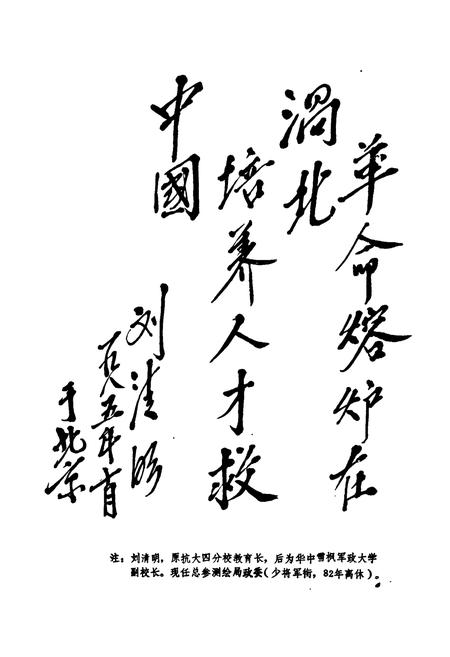 革命熔炉在
渦北
培养人才救
中國
刘清明
一九八五年月
于北京
注：刘清明，原抗大四分校教育长，后为华中雪枫军政大学
副校长。现任总参测绘局政委（少将军衔，82年离休）。